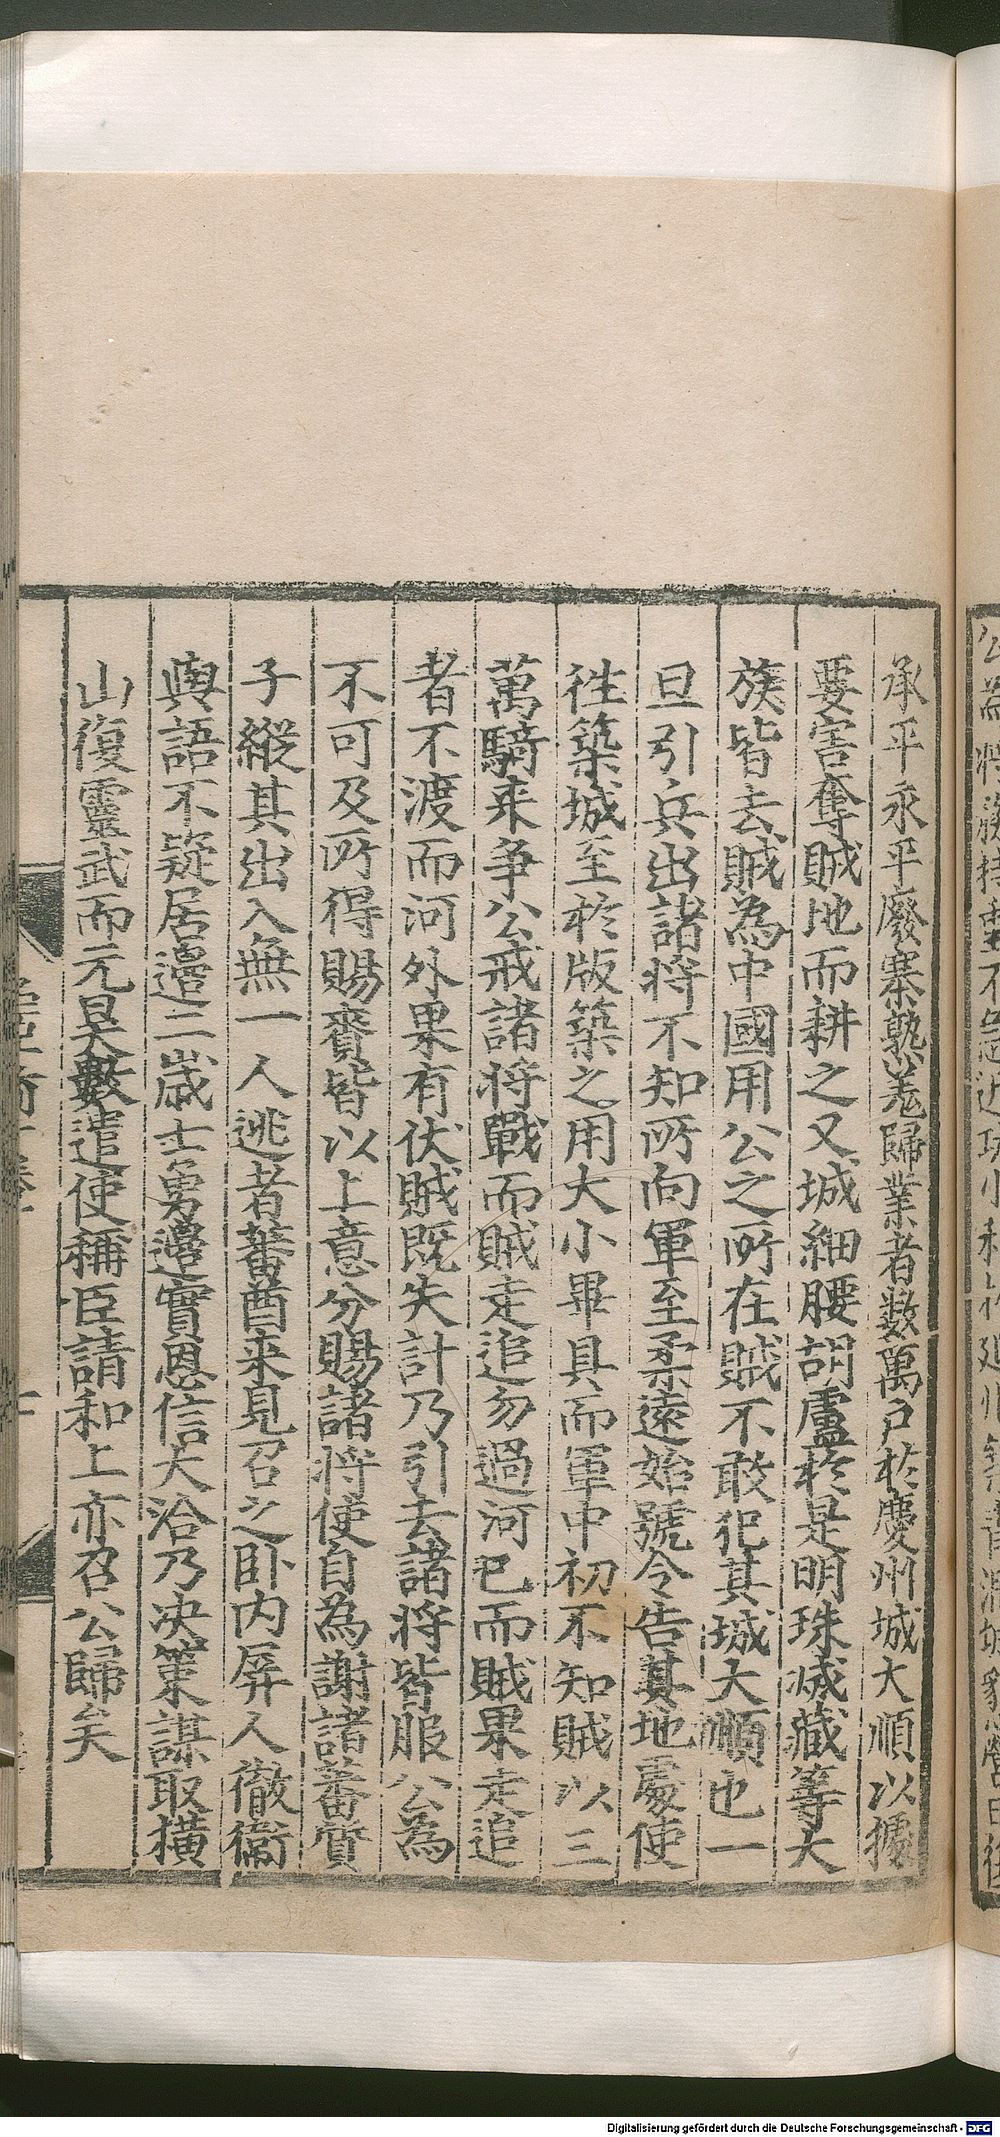 承平永平廢寨熟羗歸業者數萬戶於慶州城大順以據
要害奪賊地而耕之又城細腰胡盧於是明珠滅藏等大
族皆去賊為中國用公之所在賊不敢犯其城大順也一
旦引兵出諸將不知所向軍至柔遠始號令告其地處使
徃築城至於版築之用大小畢具而軍中初不知賊以三
萬騎来争公戒諸將戰而賊走追勿過河已而賊果走追
者不渡而河外果有伏賊既失計乃引去諸將皆服公為
不可及所得賜賚皆以上意分賜諸將使自為謝諸蕃質
子縱其出入無一人逃者蕃酋来見召之卧内屏人徹衞
與語不疑居邉二歳士勇邉實恩信大洽乃决策謀取横
山復靈武而元昊數遣使稱臣請和上亦召公歸矣
Digitalisierung gefördert durch die Deutsche Forschungsgemeinschaft - DFG